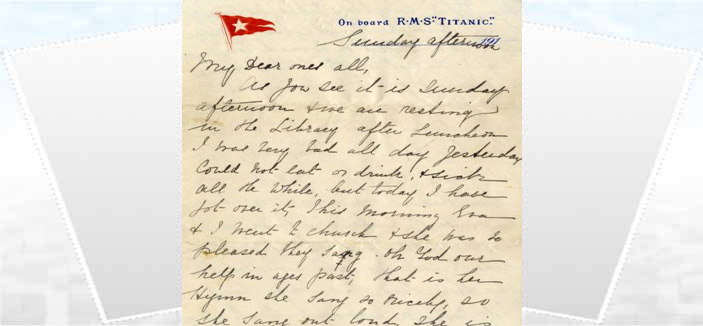 On board R·M·S "TITANIC."
Sunday afternoon
My Dear ones all,
As you see it is Sunday
afternoon & we are resting
in the Library after Luncheon
I was very bad all day Yesterday
Could not eat or drink, & sick
all the while, but today I have
got over it, This morning Eva
& I went to church & she was so
pleased they sang. Oh God our
help in ages past, that is her
Hymn she sang so nicely, so
she sang out loud, she is